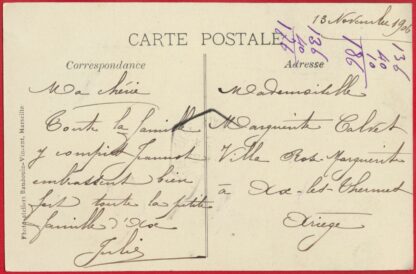 13 Novembre 1906
CARTE POSTALE
Correspondance
Adresse
Ma chérie
Toute la famille
y compris Jeannot
embrassent bien
fort toute la petite
famille d'Ax
Julie
Mademoiselle
Marguerite Calvet
Villa Ros-Marguerite
à Ax-les-Thermes
Ariège
136
40
10
186
136
40
176
Phototypie Baudouin-Vincent, Marseille